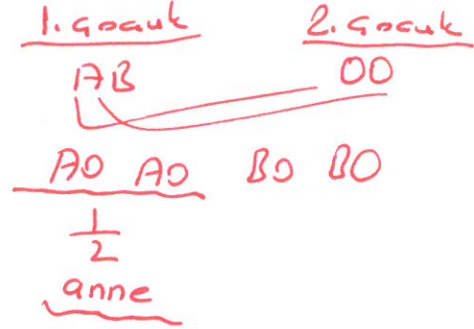 1. Gocuk 2. Gocuk
AB OO
AO AO BO BO
1
2
anne